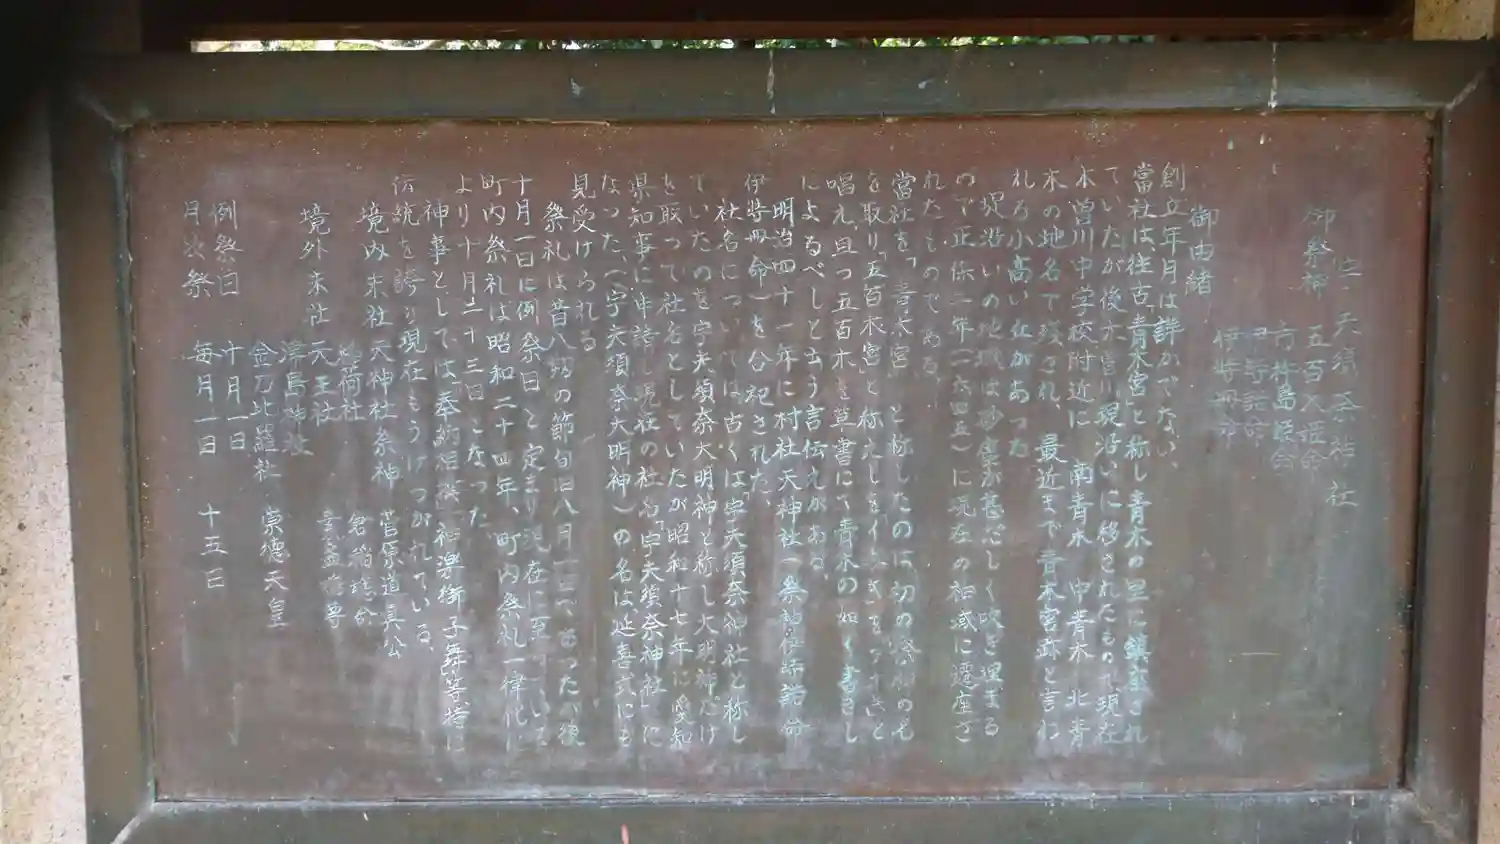 天須奈神社
御祭神 五百入姫命
市杵島姫命
伊弉諾命
伊弉冊命
御由緒
創立年月は詳かでない、
當社は、往古、青木宮と称し青木の里に鎮座され
ていたが後木曽川現沿いに移されたもので現在
木曽川中学校附近に、南青木、中青木、北青
木の地名で残され、最近まで青木宮跡と言わ
れる小高い丘があった
堤沿いの地域は砂塵が甚だしく吹き埋まる
ので正保二年(一六四五)に現在の神域に遷座さ
れたものである
當社を「青木宮」と称したのは初の祭神の名
を取り「五百木宮」と称えしを
唱え、且つ五百木を草書にて青木の如く書きし
によるべしと云う言伝えがある。
明治四十一年に村社天神社(祭神伊弉諾命
伊弉冊命)を合祀された、
社名については古くは宇夫須奈神社と称し
ていたのを宇夫須奈大明神と称し大明神だけ
を取って社名としていたが昭和十七年に愛知
県知事に申請し現社の社名「宇夫須奈神社」に
なった、(宇夫須奈大明神)の名は延喜式にも
見受けられる
祭礼は昔八朔の節句旧八月一日であったが後
十月一日に例祭日と定まり現在に至っている
町内祭礼は昭和二十四年、町内祭礼一律化に
より十月二十三日となった
神事としては「奉納相撲」神楽獅子舞等特に
伝統を誇り現在もうけつがれている、
境内末社 天神社 祭神 菅原道真公
稲荷社 倉稲魂命
境外末社 天王社
津島神社
金刀比羅社 崇徳天皇
例祭日 十月一日
月次祭 毎月一日 十五日